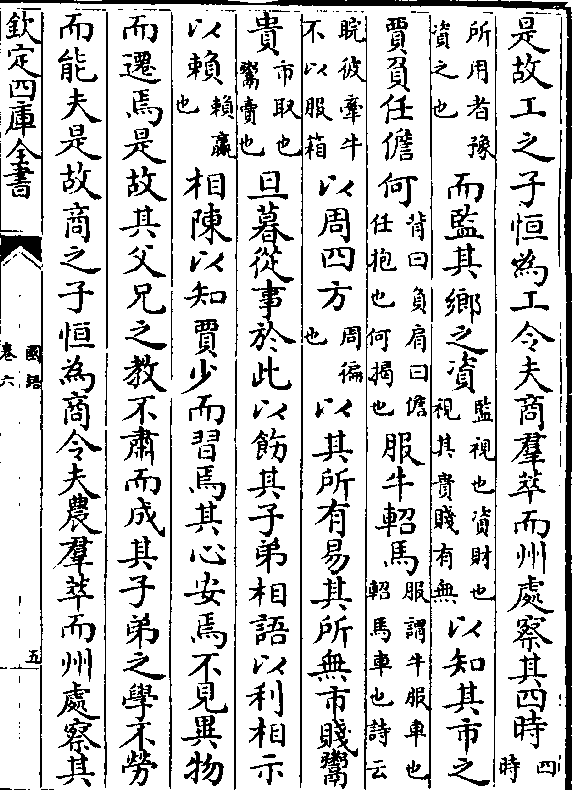 是故工之子恒為工令夫商羣萃而州處察其四時四時
所用者豫資之也而監其鄉之資監視也資財也視其貴賤有無以知其市之
賈負任儋何背曰負肩曰儋任抱也何揭也服牛軺馬服謂牛服車也軺馬車也詩云
睆彼牽牛不以服箱以周四方周徧也以其所有易其所無市賤鬻
貴市取也鬻賣也旦暮從事於此以飭其子弟相語以利相示
以賴賴贏也相陳以知賈少而習焉其心安焉不見異物
而遷焉是故其父兄之教不肅而成其子弟之學不勞
而能夫是故商之子恒為商令夫農羣萃而州處察其
欽定四庫全書
國語
卷六
五